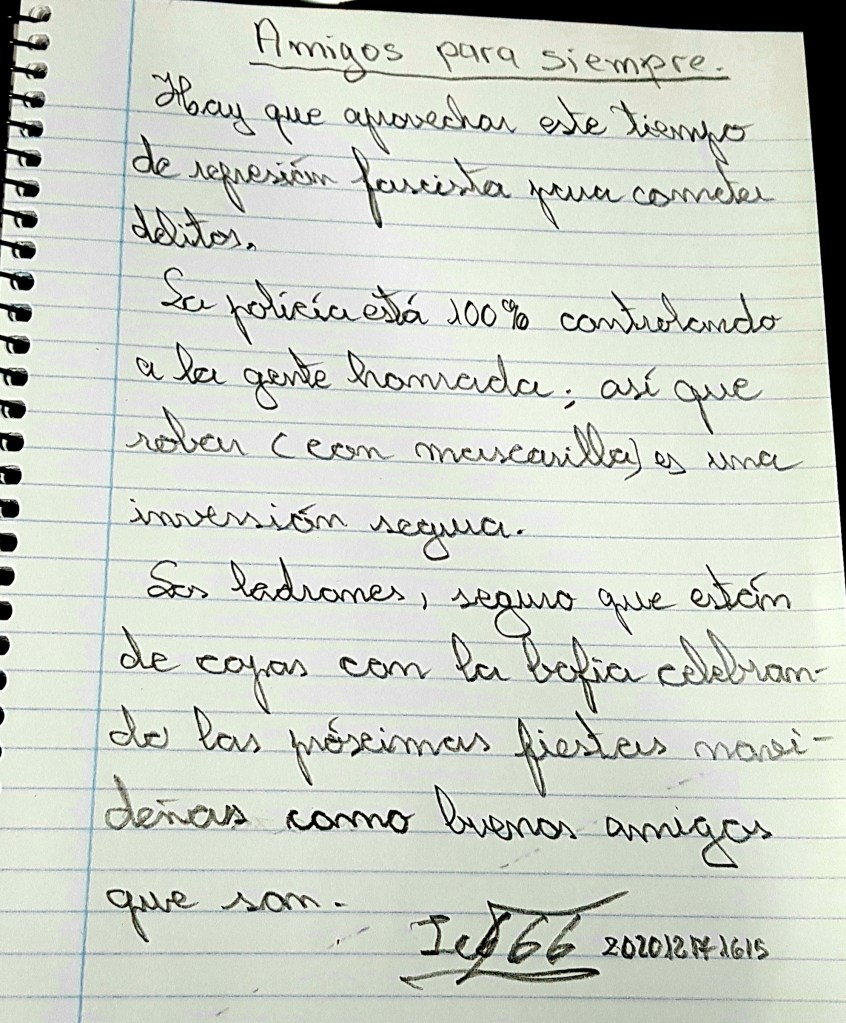 Amigos para siempre.
Hay que aprovechar este tiempo
de represión fascista para cometer
delitos.
La policía está 100% controlando
a la gente honrada; así que
robar (con mascarilla) es una
inversión segura.
Los ladrones, seguro que están
de copas con la bofia celebran-
do las próximas fiestas navi-
deñas como buenos amigos
que son.
202012171615